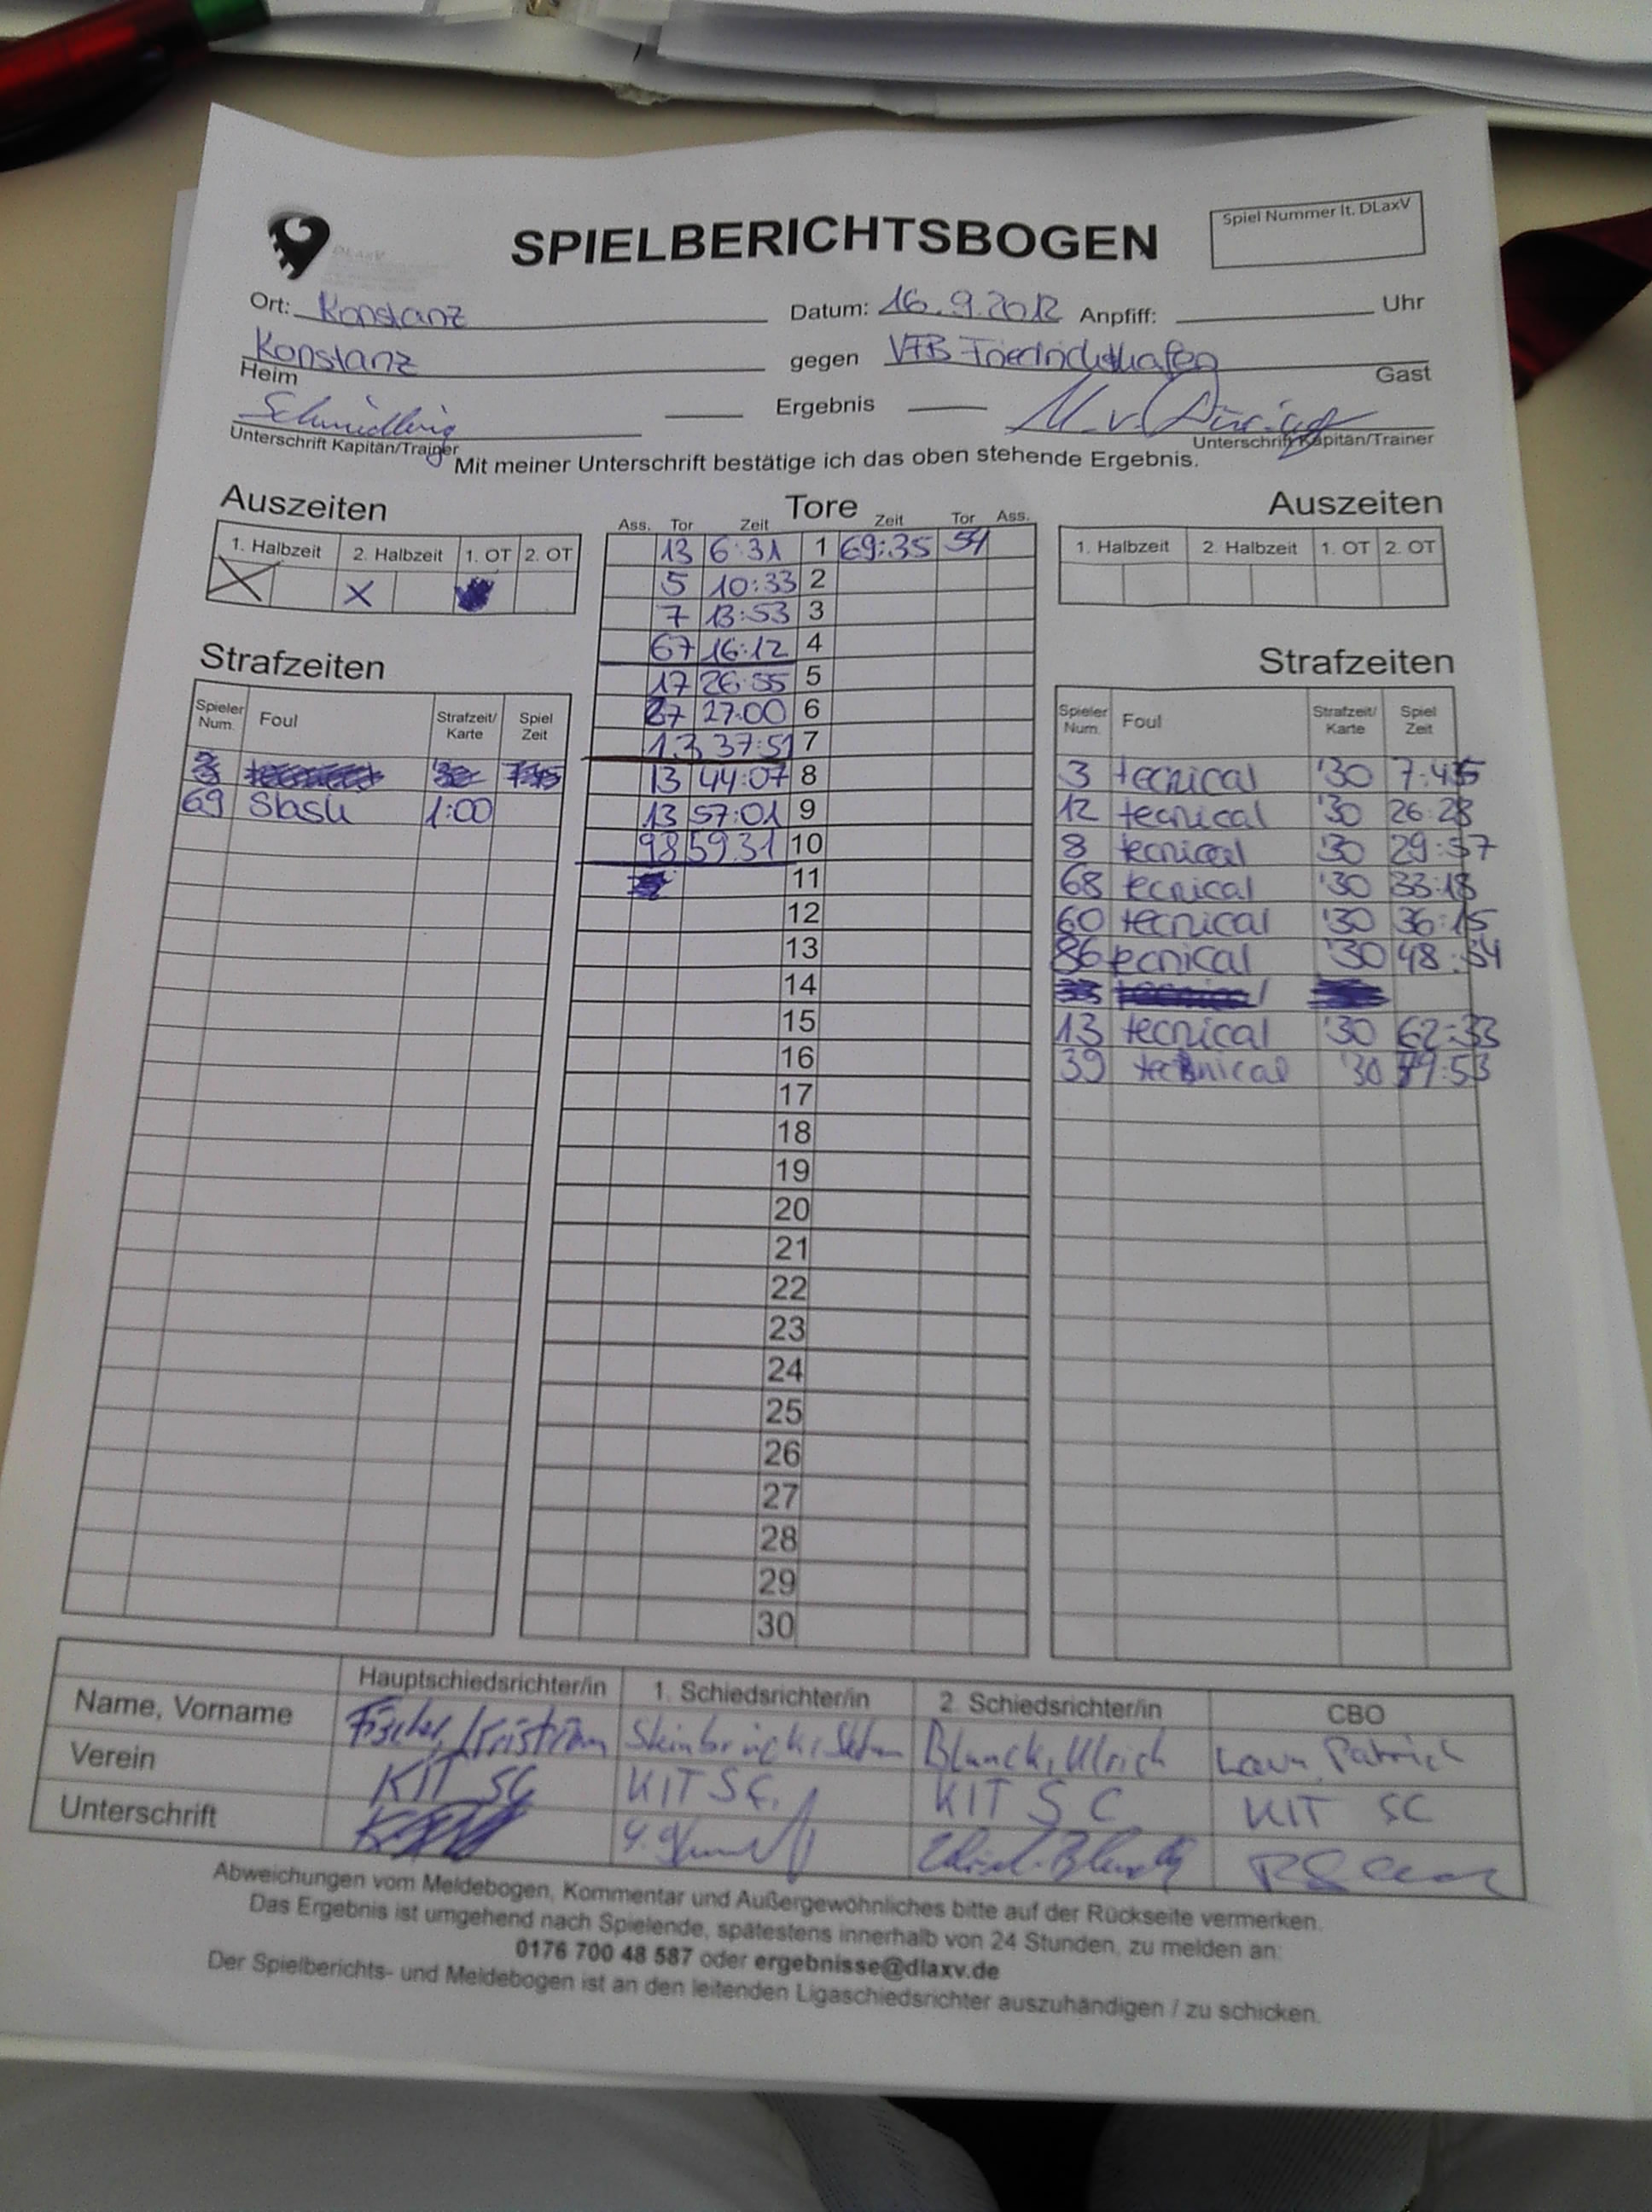 SPIELBERICHTSBOGEN
Spiel Nummer lt. DLaxV
DLaxV
Ort: Konstanz Datum: 16.9.2012 Anpfiff: Uhr
Konstanz gegen VfB Friedrichshafen
Heim Gast
Ergebnis
Unterschrift Kapitän/Trainer Unterschrift Kapitän/Trainer
Mit meiner Unterschrift bestätige ich das oben stehende Ergebnis.
Auszeiten
1. Halbzeit 2. Halbzeit 1. OT 2. OT
X X
Strafzeiten
Spieler Num. Foul Strafzeit/ Karte Spiel Zeit
69 Slash 1:00
Tore
Ass. Tor Zeit Zeit Tor Ass.
13 6:31 1 69:35 54
5 10:33 2
7 13:53 3
67 16:12 4
17 26:55 5
27:00 6
13 37:51 7
13 44:07 8
13 57:01 9
98 59:31 10
11
12
13
14
15
16
17
18
19
20
21
22
23
24
25
26
27
28
29
30
Auszeiten
1. Halbzeit 2. Halbzeit 1. OT 2. OT
Strafzeiten
Spieler Num. Foul Strafzeit/ Karte Spiel Zeit
3 tecnical '30
12 tecnical '30 26:28
8 tecnical '30 29:57
68 tecnical '30 33:18
60 tecnical '30 36:15
86 tecnical '30 48:34
13 tecnical '30 62:33
39 technical '30
Hauptschiedsrichter/in 1. Schiedsrichter/in 2. Schiedsrichter/in CBO
Name, Vorname Fischer, Blanck, Ulrich Patrick
Verein KIT SC KIT SC KIT SC KIT SC
Unterschrift
Abweichungen vom Meldebogen, Kommentar und Außergewöhnliches bitte auf der Rückseite vermerken.
Das Ergebnis ist umgehend nach Spielende, spätestens innerhalb von 24 Stunden, zu melden an:
0176 700 48 587 oder ergebnisse@dlaxv.de
Der Spielberichts- und Meldebogen ist an den leitenden Ligaschiedsrichter auszuhändigen / zu schicken.